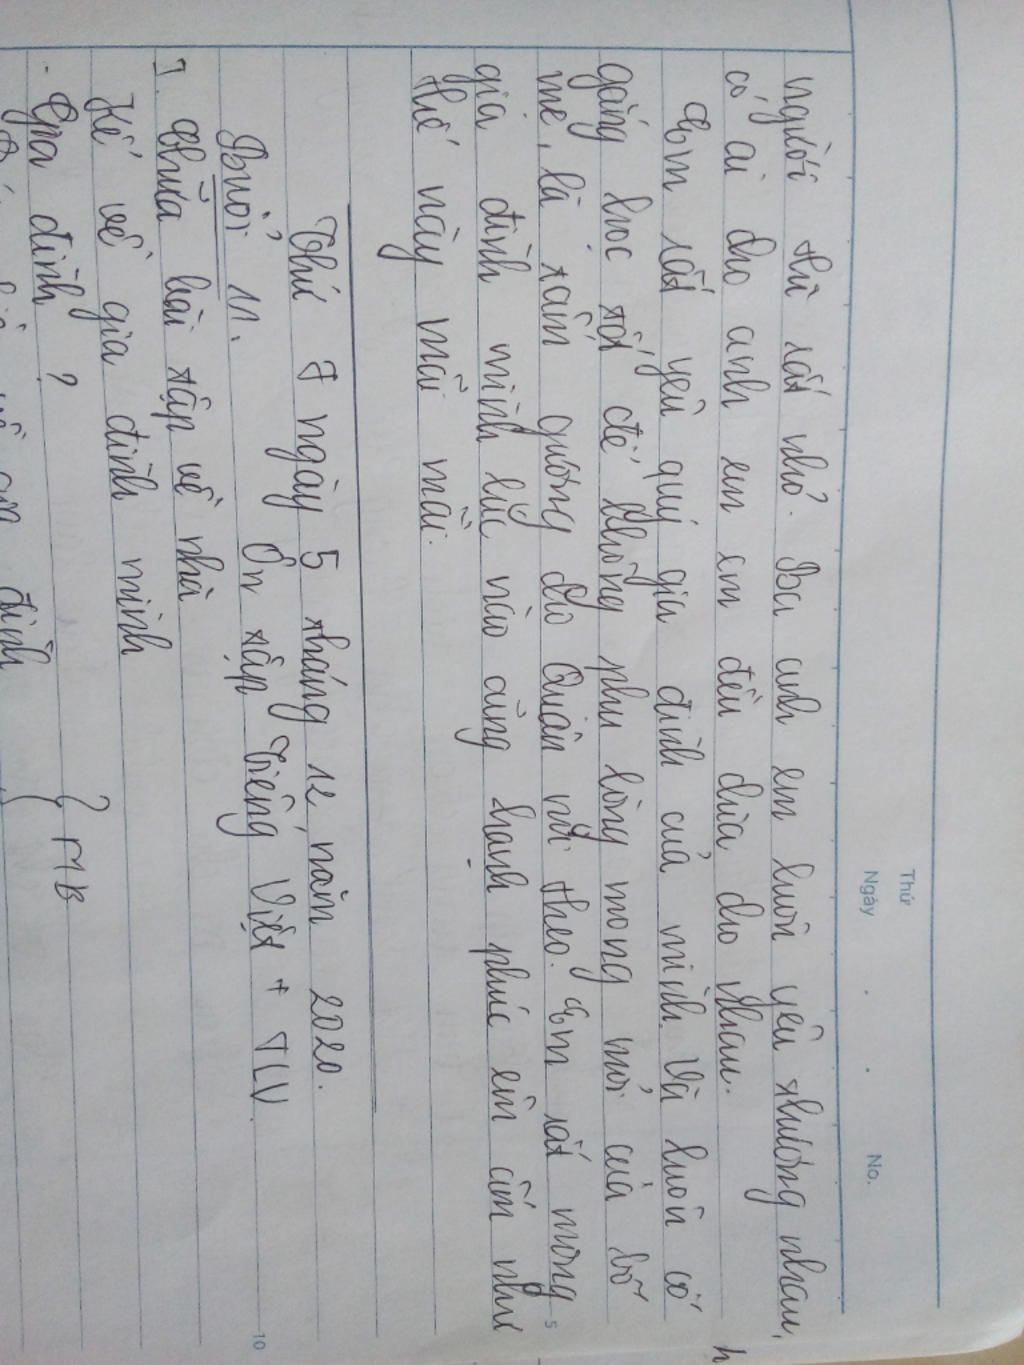 Thứ
Ngày
No.
người thì rất nhỏ. Ba anh em luôn yêu thương nhau,
có ai cho anh em em đều chia cho nhau.
Em rất yêu quý gia đình của mình. Và luôn cố
gắng học tốt để không phụ lòng mong mỏi của bố
mẹ, là tấm gương cho Quân noi theo. Em rất mong
5
gia đình mình lúc nào cũng hạnh phúc êm ấm như
thế này mãi mãi.
Thứ 7 ngày 5 tháng 12 năm 2020.
Buổi 11. Ôn tập Tiếng Việt + TLV.
10
I. Chữa bài tập về nhà
Kể về gia đình mình
- Gia đình ? } MB
về gia đình